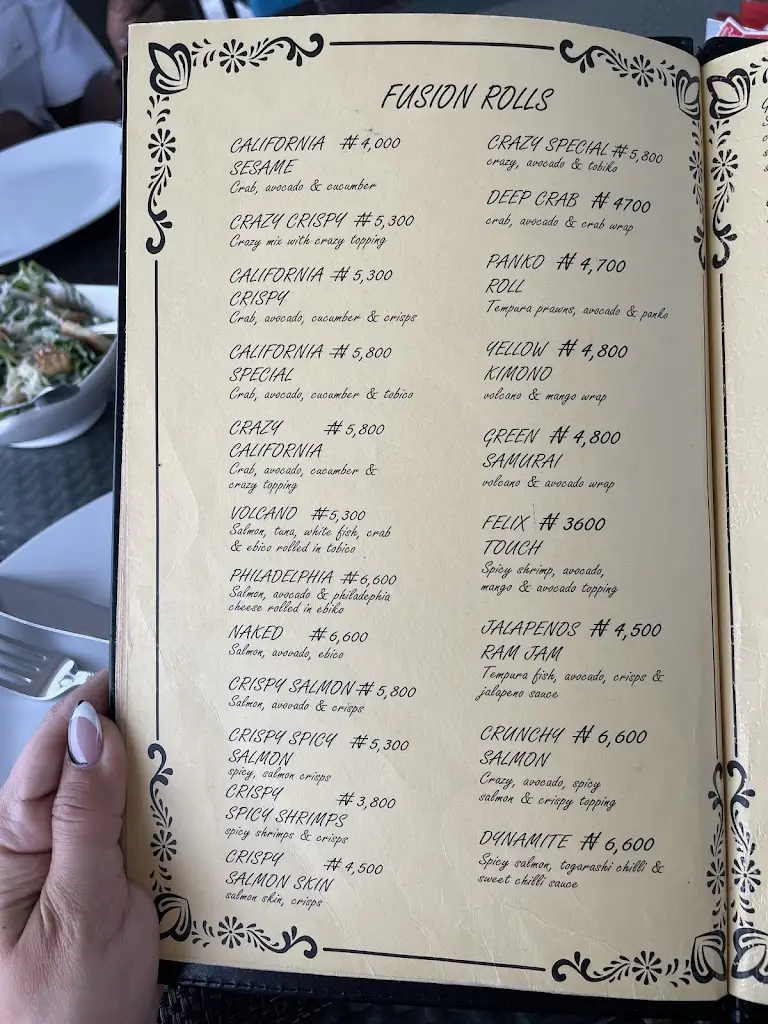 FUSION ROLLS
CALIFORNIA ₦4,000
SESAME
Crab, avocado & cucumber
CRAZY CRISPY ₦5,300
Crazy mix with crazy topping
CALIFORNIA ₦5,300
CRISPY
Crab, avocado, cucumber & crisps
CALIFORNIA ₦5,800
SPECIAL
Crab, avocado, cucumber & tobico
CRAZY ₦5,800
CALIFORNIA
Crab, avocado, cucumber &
crazy topping
VOLCANO ₦5,300
Salmon, tuna, white fish, crab
& ebico rolled in tobico
PHILADELPHIA ₦6,600
Salmon, avocado & philadephia
cheese rolled in ebiko
NAKED ₦6,600
Salmon, avovado, ebico
CRISPY SALMON ₦5,800
Salmon, avocado & crisps
CRISPY SPICY ₦5,300
SALMON
spicy, salmon crisps
CRISPY ₦3,800
SPICY SHRIMPS
spicy shrimps & crisps
CRISPY ₦4,500
SALMON SKIN
salmon skin, crisps
CRAZY SPECIAL ₦5,800
crazy, avocado & tobiko
DEEP CRAB ₦4700
crab, avocado & crab wrap
PANKO ₦4,700
ROLL
Tempura prawns, avocado & panko
YELLOW ₦4,800
KIMONO
volcano & mango wrap
GREEN ₦4,800
SAMURAI
volcano & avocado wrap
FELIX ₦3600
TOUCH
Spicy shrimp, avocado,
mango & avocado topping
JALAPENOS ₦4,500
RAM JAM
Tempura fish, avocado, crisps &
jalapeno sauce
CRUNCHY ₦6,600
SALMON
Crazy, avocado, spicy
salmon & crispy topping
DYNAMITE ₦6,600
Spicy salmon, togarashi chilli &
sweet chilli sauce